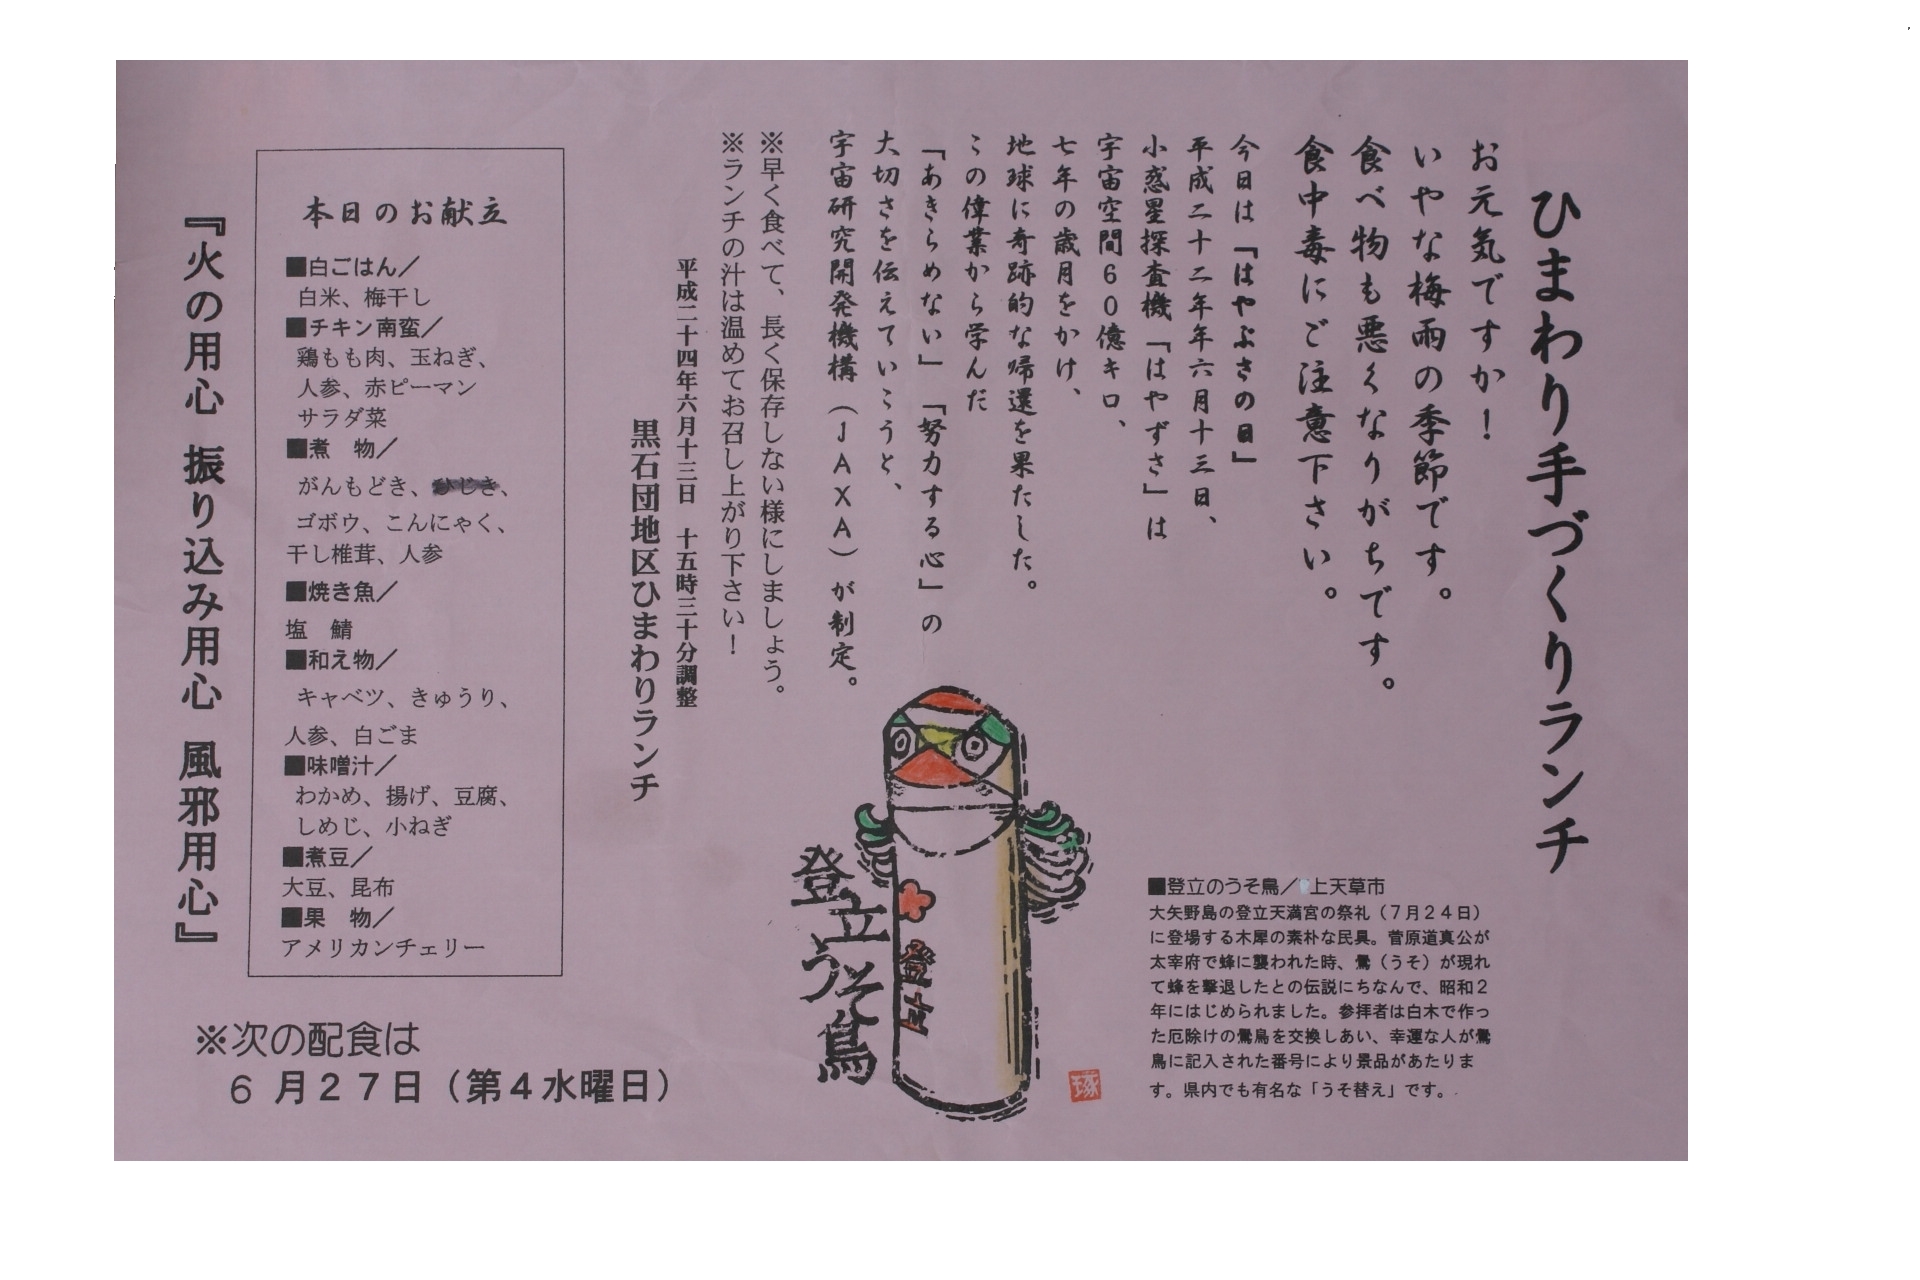 ひまわり手づくりランチ
お元気ですか！
いやな梅雨の季節です。
食べ物も悪くなりがちです。
食中毒にご注意下さい。
今日は「はやぶさの日」
平成二十二年年六月十三日、
小惑星探査機「はやずさ」は
宇宙空間６０億キロ、
七年の歳月をかけ、
地球に奇跡的な帰還を果たした。
この偉業から学んだ
「あきらめない」「努力する心」の
大切さを伝えていこうと、
宇宙研究開発機構（ＪＡＸＡ）が制定。
※早く食べて、長く保存しない様にしましょう。
※ランチの汁は温めてお召し上がり下さい！
平成二十四年六月十三日　十五時三十分調整
黒石団地区ひまわりランチ
本日のお献立
■白ごはん／
白米、梅干し
■チキン南蛮／
鶏もも肉、玉ねぎ、
人参、赤ピーマン
サラダ菜
■煮　物／
がんもどき、ひじき、
ゴボウ、こんにゃく、
干し椎茸、人参
■焼き魚／
塩　鯖
■和え物／
キャベツ、きゅうり、
人参、白ごま
■味噌汁／
わかめ、揚げ、豆腐、
しめじ、小ねぎ
■煮豆／
大豆、昆布
■果　物／
アメリカンチェリー
『火の用心 振り込み用心 風邪用心』
※次の配食は
６月２７日（第４水曜日）
登立うそ鳥
登立
琢
■登立のうそ鳥／上天草市
大矢野島の登立天満宮の祭礼（７月２４日）
に登場する木犀の素朴な民具。菅原道真公が
太宰府で蜂に襲われた時、鷽（うそ）が現れ
て蜂を撃退したとの伝説にちなんで、昭和２
年にはじめられました。参拝者は白木で作っ
た厄除けの鷽鳥を交換しあい、幸運な人が鷽
鳥に記入された番号により景品があたりま
す。県内でも有名な「うそ替え」です。